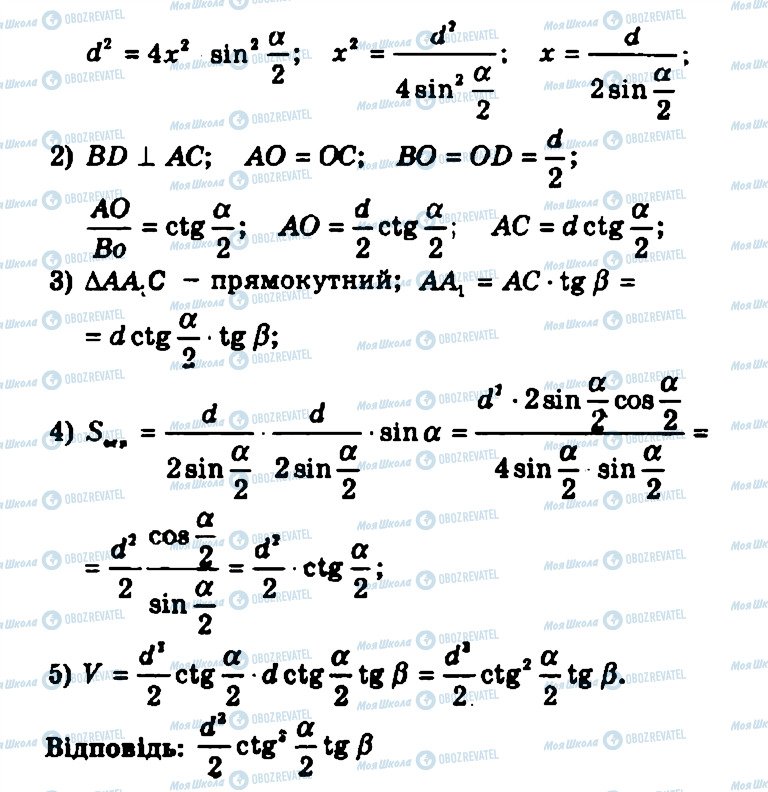 d² = 4x² · sin² α/2; x² = d²/(4 sin² α/2); x = d/(2 sin α/2);
2) BD ⊥ AC; AO = OC; BO = OD = d/2;
AO/Bo = ctg α/2; AO = d/2 ctg α/2; AC = d ctg α/2;
3) ΔAA₁C – прямокутний; AA₁ = AC · tg β =
= d ctg α/2 · tg β;
4) Sосн = d/(2 sin α/2) · d/(2 sin α/2) · sin α = (d² · 2 sin α/2 cos α/2)/(4 sin α/2 · sin α/2) =
= d²/2 (cos α/2)/(sin α/2) = d²/2 · ctg α/2;
5) V = d²/2 ctg α/2 · d ctg α/2 tg β = d³/2 ctg² α/2 tg β.
Відповідь: d³/2 ctg² α/2 tg β